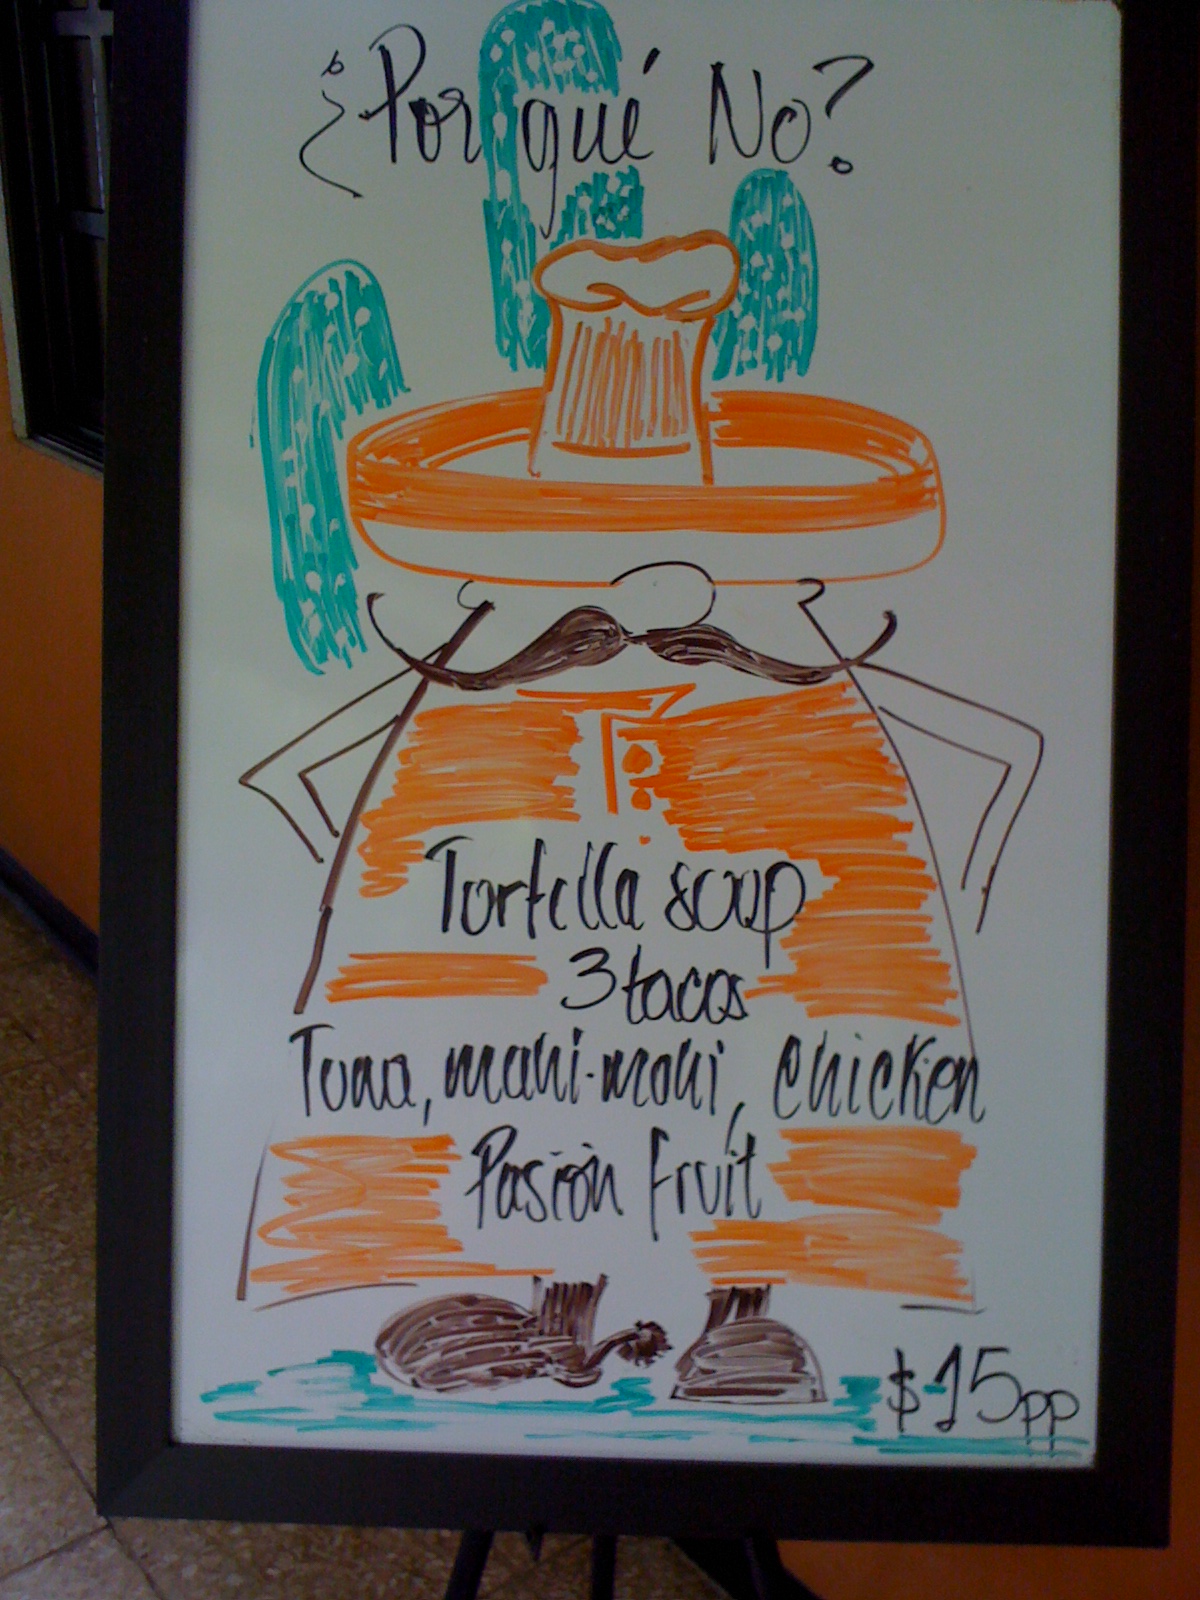 ¿Por qué No?
Tortilla soup
3 tacos
Tuna, mahi-mahi, chicken
Pasión fruit
$15pp